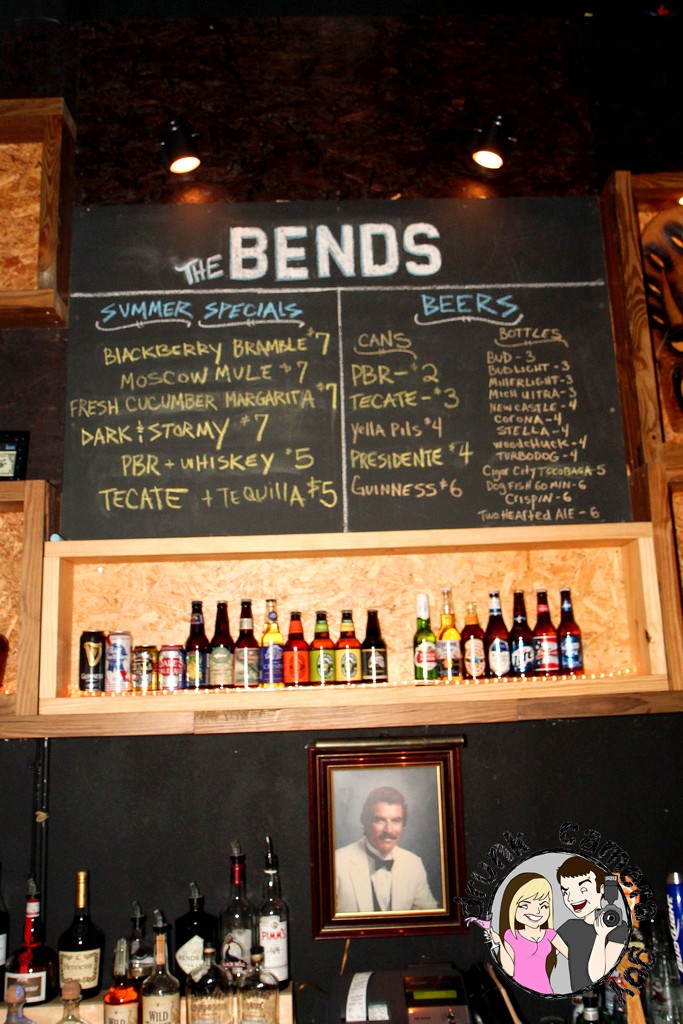 THE BENDS
SUMMER SPECIALS
BLACKBERRY BRAMBLE $7
MOSCOW MULE $7
FRESH CUCUMBER MARGARITA $7
DARK & STORMY $7
PBR + WHISKEY $5
TECATE + TEQUILLA $5
BEERS
CANS
PBR - $2
TECATE - $3
Yella Pils $4
PRESIDENTE $4
GUINNESS $6
BOTTLES
BUD - 3
BUDLIGHT - 3
MILLERLIGHT - 3
MICH ULTRA - 3
NEWCASTLE - 4
CORONA - 4
STELLA - 4
WOODCHUCK - 4
TURBODOG - 4
Cigar City TOCOBAGA - 5
DogFISH 60 MIN - 6
CRISPIN - 6
Two Hearted ALE - 6
GUINNESS
Hennessy
PIMM'S
WILD
WILD
drunk camera guy